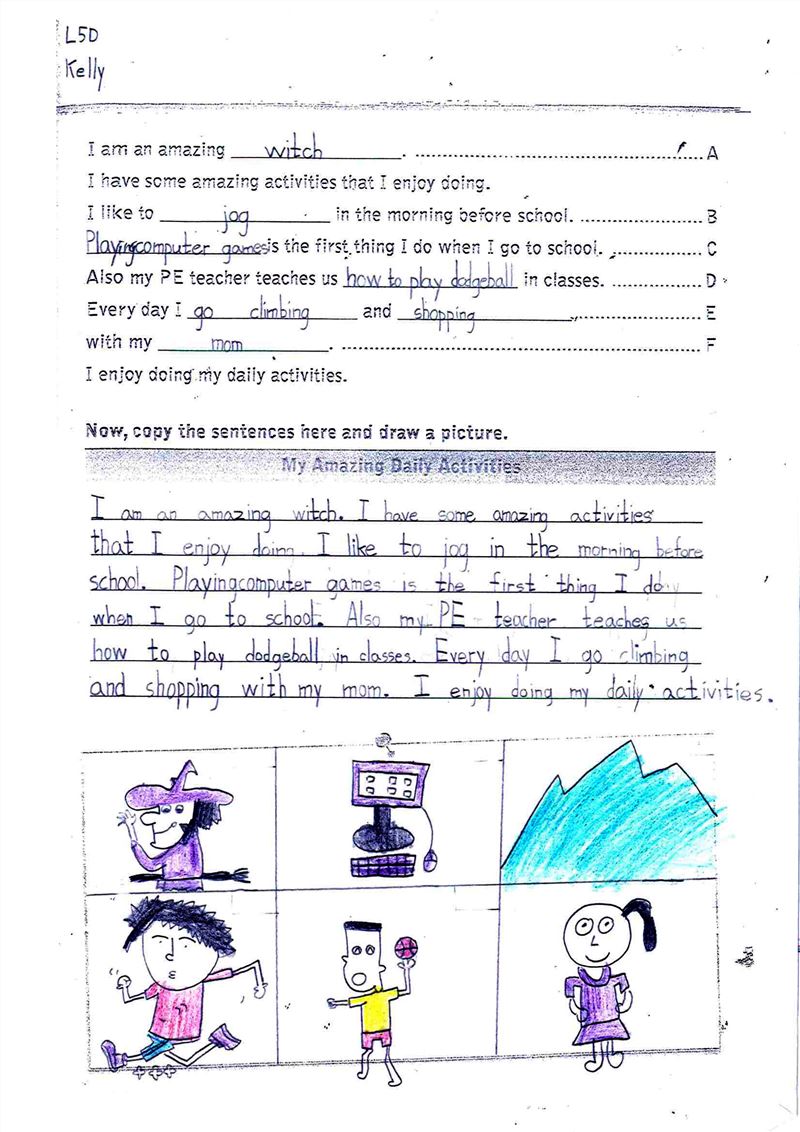 L5D
Kelly
I am an amazing witch. A
I have some amazing activities that I enjoy doing.
I like to jog in the morning before school. B
Playingcomputer games is the first thing I do when I go to school. C
Also my PE teacher teaches us how to play dodgeball in classes. D
Every day I go climbing and shopping E
with my mom. F
I enjoy doing my daily activities.
Now, copy the sentences here and draw a picture.
My Amazing Daily Activities
I am an amazing witch. I have some amazing activities
that I enjoy doing. I like to jog in the morning before
school. Playingcomputer games is the first thing I do
when I go to school. Also my PE teacher teaches us
how to play dodgeball in classes. Every day I go climbing
and shopping with my mom. I enjoy doing my daily activities.